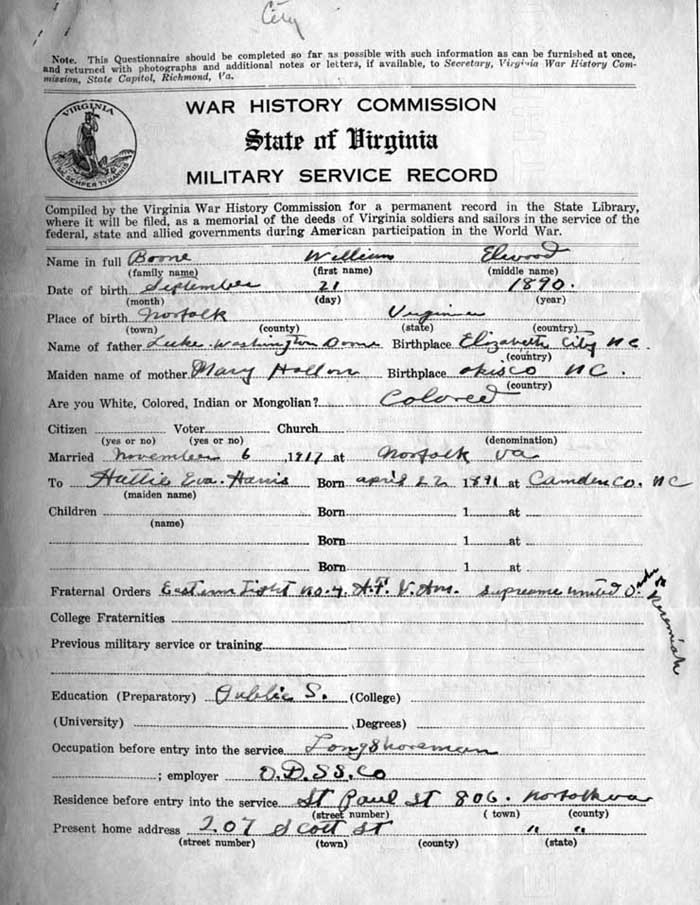 City
Note. This Questionnaire should be completed so far as possible with such information as can be furnished at once,
and returned with photographs and additional notes or letters, if available, to Secretary, Virginia War History Com-
mission, State Capitol, Richmond, Va.
VIRGINIA
SIC SEMPER TYRANNIS
WAR HISTORY COMMISSION
State of Virginia
MILITARY SERVICE RECORD
Compiled by the Virginia War History Commission for a permanent record in the State Library,
where it will be filed, as a memorial of the deeds of Virginia soldiers and sailors in the service of the
federal, state and allied governments during American participation in the World War.
Name in full Boone William Elwood
(family name) (first name) (middle name)
Date of birth September 21 1890.
(month) (day) (year)
Place of birth Norfolk Virginia
(town) (county) (state) (country)
Name of father Luke Washington Boone Birthplace Elizabeth City NC.
(country)
Maiden name of mother Mary Birthplace Okisco NC.
(country)
Are you White, Colored, Indian or Mongolian? Colored
Citizen Voter Church
(yes or no) (yes or no) (denomination)
Married November 6, 1917 at Norfolk Va
To Hattie Eva. Harris Born April 22 1891 at Camden Co. NC
(maiden name)
Children Born 1 at
(name)
Born 1 at
Born 1 at
Fraternal Orders Eastern Light no. 4. Supreme United
Jeremiah
College Fraternities
Previous military service or training
Education (Preparatory) Public S. (College)
(University) Degrees)
Occupation before entry into the service Longshoreman
; employer O.D.SS.Co
Residence before entry into the service St Paul St 806. Norfolk va
(street number) (town) (county)
Present home address 207 Scott St " "
(street number) (town) (county) (state)